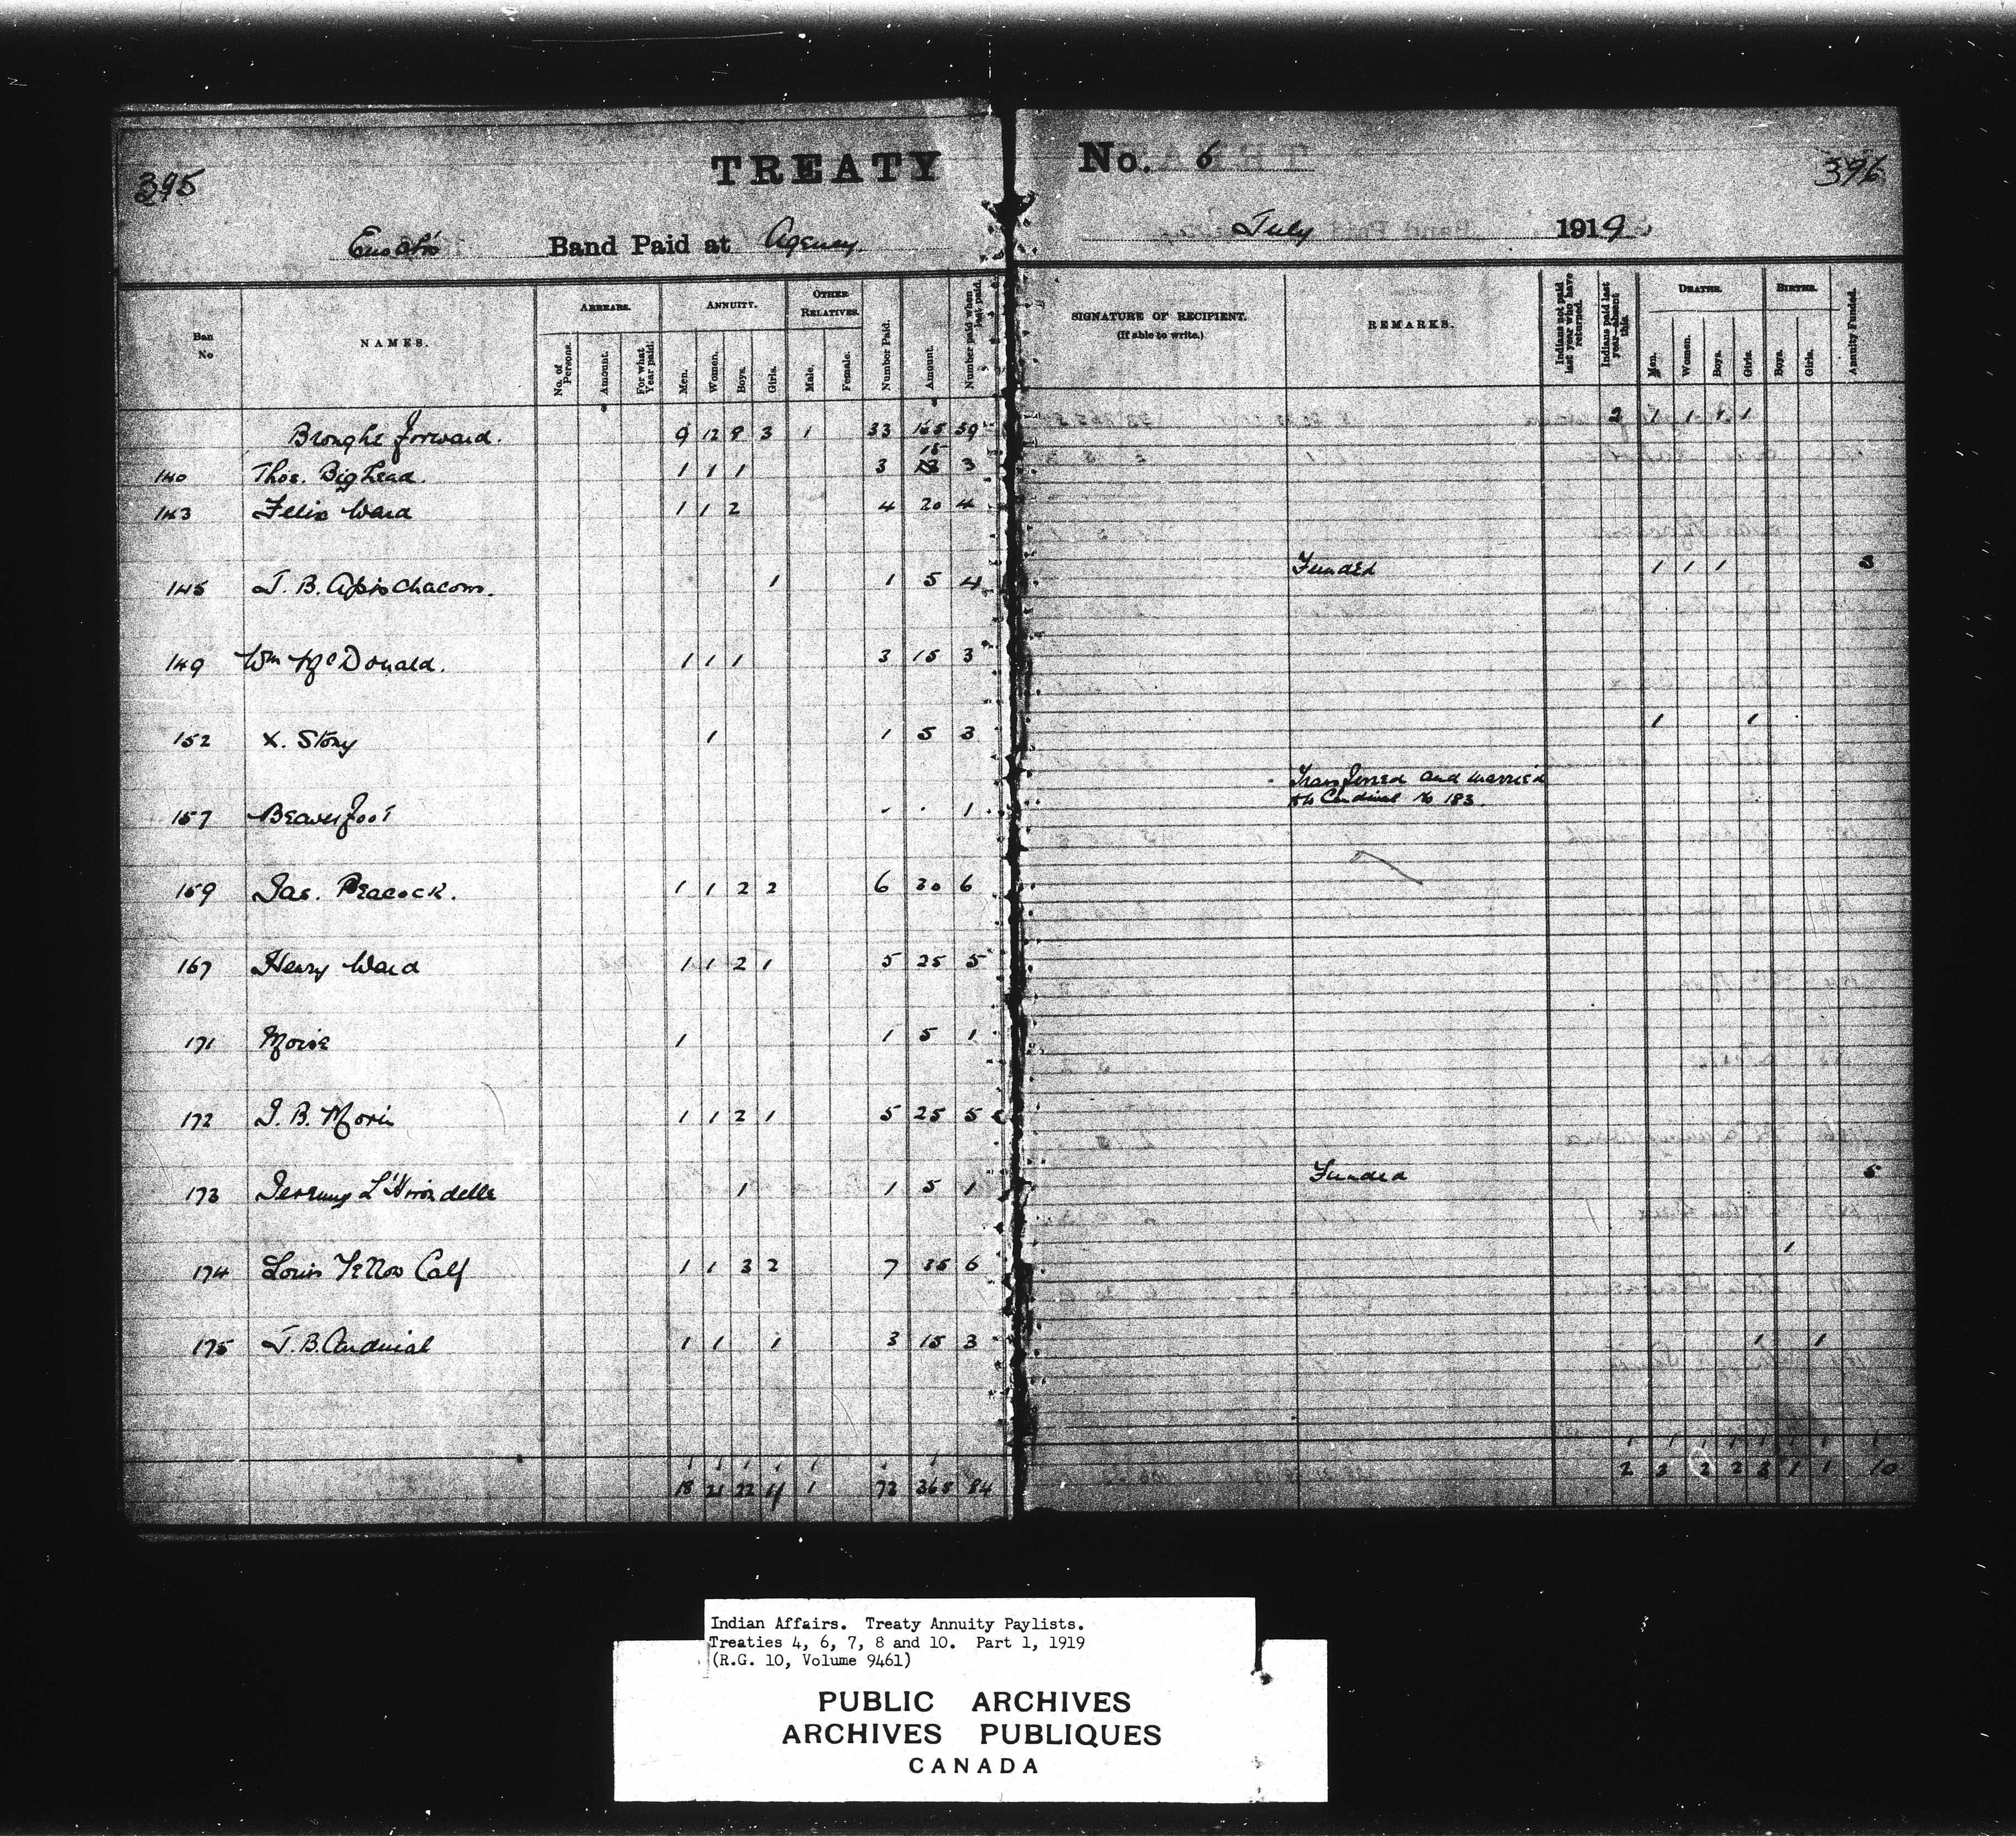 395
TREATY No. 6
396
Enoch's Band Paid at Agency July 1919
Ban No
NAMES.
ARREARS.
No. of Persons.
Amount.
For what Year paid.
ANNUITY.
Men.
Women.
Boys.
Girls.
OTHER RELATIVES.
Male.
Female.
Number Paid.
Amount.
Number paid when last paid.
SIGNATURE OF RECIPIENT.
(If able to write.)
REMARKS.
Indians not paid last year who have returned.
Indians paid last year absent this.
DEATHS.
Men.
Women.
Boys.
Girls.
BIRTHS.
Boys.
Girls.
Annuity Funded.
Brought forward. 9 12 9 3 1 33 165 39 2 1 1 1 1
140 Thos. Bighead. 1 1 1 3 15 3
143 Felix Ward 1 1 2 4 20 4
145 J. B. Apischacoos. 1 1 5 4 Funded 1 1 1 5
149 Wm McDonald. 1 1 1 3 15 3
152 X. Stony 1 1 5 3 1 1
157 Beaverfoot 1 Transferred and married
to Cardinal No 183.
159 Jas. Peacock. 1 1 2 2 6 30 6
167 Henry Ward 1 1 2 1 5 25 5
171 Moise 1 1 5 1
172 J. B. Morin 1 1 2 1 5 25 5
173 Jeremy L'Hirondelle 1 1 5 1 Funded 5
174 Louis Yellow Calf 1 1 3 2 7 35 6 1
175 J. B. Cardinal 1 1 1 3 15 3 1 1
18 21 22 11 1 72 365 84 2 3 2 2 3 1 1 10
Indian Affairs. Treaty Annuity Paylists.
Treaties 4, 6, 7, 8 and 10. Part 1, 1919
(R.G. 10, Volume 9461)
PUBLIC ARCHIVES
ARCHIVES PUBLIQUES
CANADA